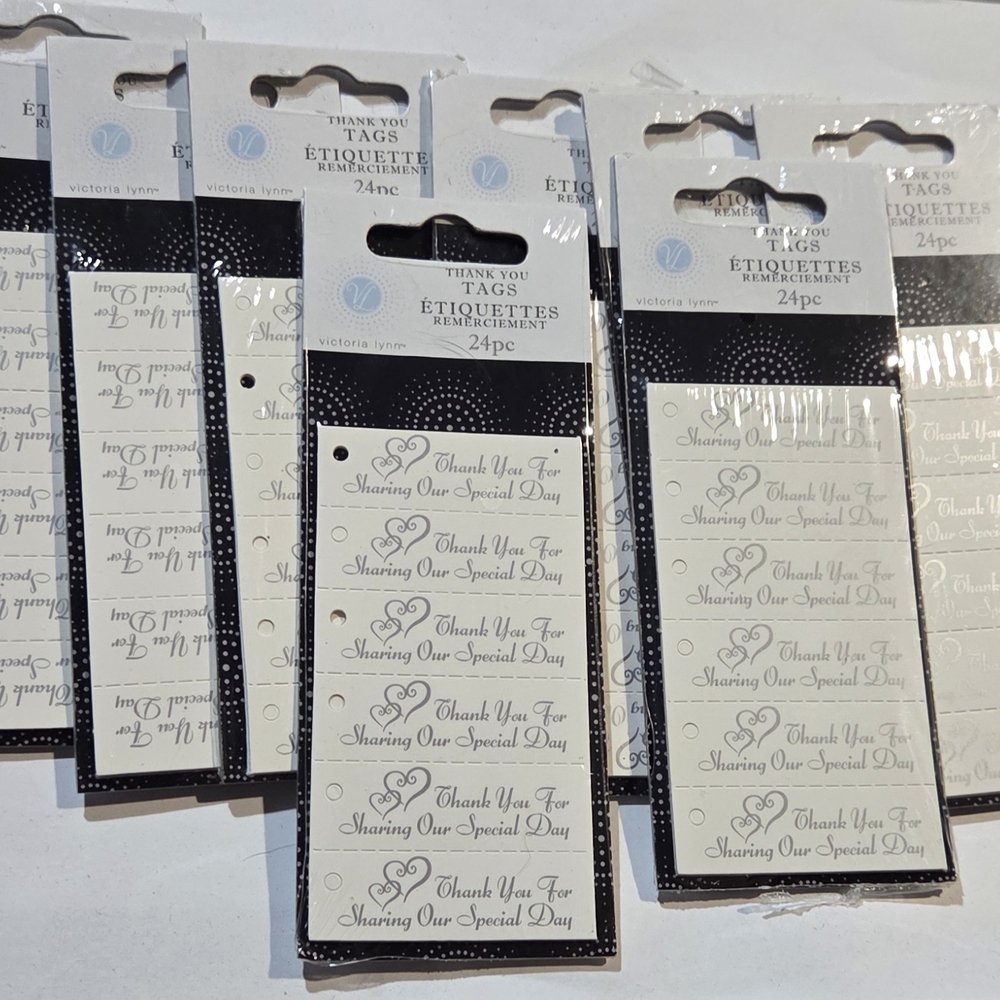 ÉT
RE
victoria lynn™
THANK YOU
TAGS
ÉTIQUETTE
REMERCIEMENT
24pc
victoria lynn™
ÉTIQ
REMER
THANK YOU
TAGS
ÉTIQUETTES
REMERCIEMENT
24pc
victoria lynn™
Thank You For
Sharing Our Special Day
Thank You For
Sharing Our Special Day
Thank You For
Sharing Our Special Day
Thank You For
Sharing Our Special Day
Thank You For
Sharing Our Special Day
Thank You For
Sharing Our Special Day
THANK YOU
TAGS
ÉTIQUETTES
REMERCIEMENT
24pc
victoria lynn™
Thank You For
Sharing Our Special Day
Thank You For
Sharing Our Special Day
Thank You For
Sharing Our Special Day
Thank You For
Sharing Our Special Day
Thank You For
Sharing Our Special Day
Thank You For
Sharing Our Special Day
THANK YOU
TAGS
TIQUETTES
EMERCIEMENT
24pc